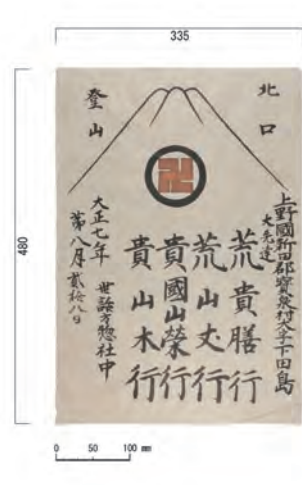 335
480
北口
登山
上野國新田郡寶泉村大字下田島
大先達
荒貴膳行
荒山丈行
貴國山榮行
貴山木行
世話方惣社中
大正七年
第八月貳拾八日
0 50 100 mm